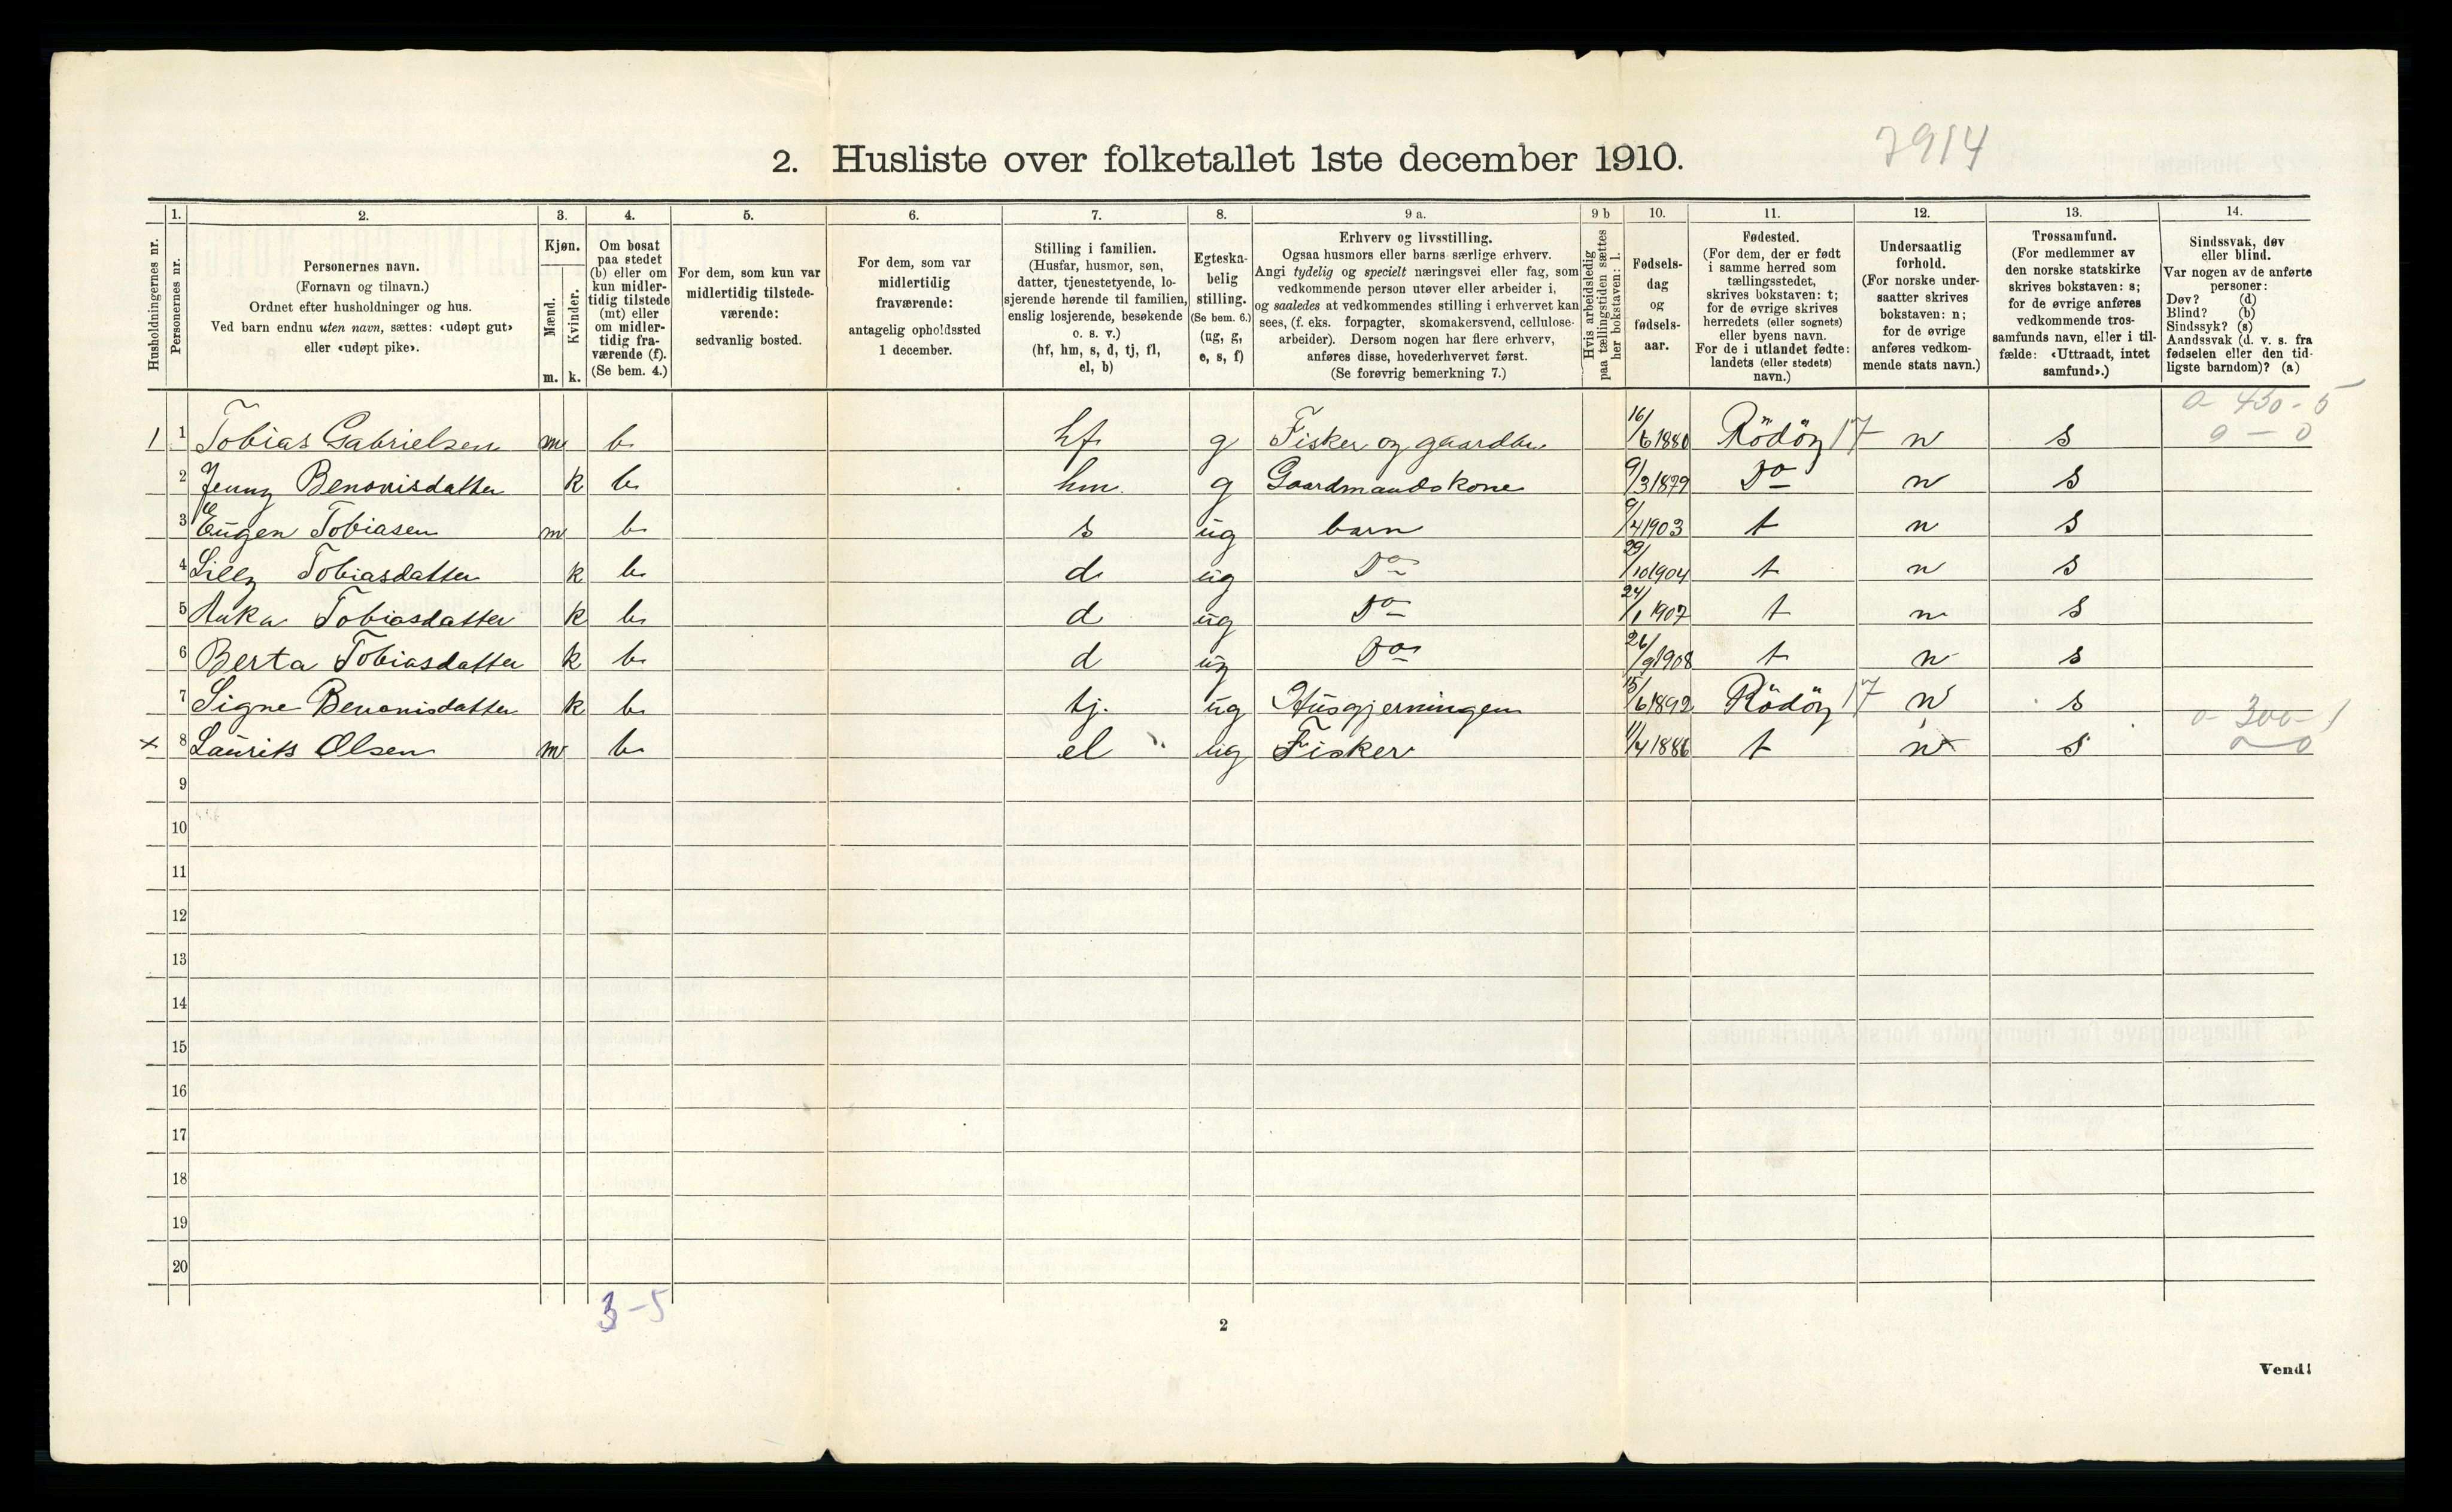 7914
2. Husliste over folketallet 1ste december 1910.
Husholdningernes nr.
1.
Personernes nr.
2.
Personernes navn.
(Fornavn og tilnavn.)
Ordnet efter husholdninger og hus.
Ved barn endnu uten navn, sættes: «udøpt gut»
eller «udøpt pike».
3.
Kjøn.
Mænd.
Kvinder.
m. k.
4.
Om bosat
paa stedet
(b) eller om
kun midler-
tidig tilstede
(mt) eller
om midler-
tidig fra-
værende (f).
(Se bem. 4.)
5.
For dem, som kun var
midlertidig tilstede-
værende:
sedvanlig bosted.
6.
For dem, som var
midlertidig
fraværende:
antagelig opholdssted
1 december.
7.
Stilling i familien.
(Husfar, husmor, søn,
datter, tjenestetyende, lo-
sjerende hørende til familien,
enslig losjerende, besøkende
o. s. v.)
(hf, hm, s, d, tj, fl,
el, b)
8.
Egteska-
belig
stilling.
(Se bem. 6.)
(ug, g,
e, s, f)
9 a.
Erhverv og livsstilling.
Ogsaa husmors eller barns særlige erhverv.
Angi tydelig og specielt næringsvei eller fag, som
vedkommende person utøver eller arbeider i,
og saaledes at vedkommendes stilling i erhvervet kan
sees, (f. eks. forpagter, skomakersvend, cellulose-
arbeider). Dersom nogen har flere erhverv,
anføres disse, hovederhvervet først.
(Se forøvrig bemerkning 7.)
9 b
Hvis arbeidsledig
paa tællingstiden sættes
her bokstaven: l.
10.
Fødsels-
dag
og
fødsels-
aar.
11.
Fødested.
(For dem, der er født
i samme herred som
tællingsstedet,
skrives bokstaven: t;
for de øvrige skrives
herredets (eller sognets)
eller byens navn.
For de i utlandet fødte:
landets (eller stedets)
navn.)
12.
Undersaatlig
forhold.
(For norske under-
saatter skrives
bokstaven: n;
for de øvrige
anføres vedkom-
mende stats navn.)
13.
Trossamfund.
(For medlemmer av
den norske statskirke
skrives bokstaven: s;
for de øvrige anføres
vedkommende tros-
samfunds navn, eller i til-
fælde: «Uttraadt, intet
samfund».)
14.
Sindssvak, døv
eller blind.
Var nogen av de anførte
personer:
Døv? (d)
Blind? (b)
Sindssyk? (s)
Aandssvak (d. v. s. fra
fødselen eller den tid-
ligste barndom)? (a)
1 1 Tobias Gabrielsen m b. hf. g Fisker og gaardbr 16/6 1880 Rödöy 17 n s 0-450-5 0-0
2 Jenny Benonisdatter k b. hm. g Gaardmandskone 9/3 1879 Do n s
3 Eugen Tobiasen m b. s ug barn 9/4 1903 t n s
4 Lilly Tobiasdatter k b. d. ug Do 29/10 1904 t n s
5 Tobiasdatter k b. d ug Do 24/1 1907 t n s
6 Berta Tobiasdatter k b. d ug Do 26/9 1908 t n s
7 Signe Benonisdatter k b. tj. ug Husgjerningen 15/6 1892 Rödöy 17 n s
x 8 Laurits Olsen m b. el ug Fisker 11/4 1886 t n s 0-300-1 0-0
9
10
11
12
13
14
15
16
17
18
19
20
3-5
2
Vend!